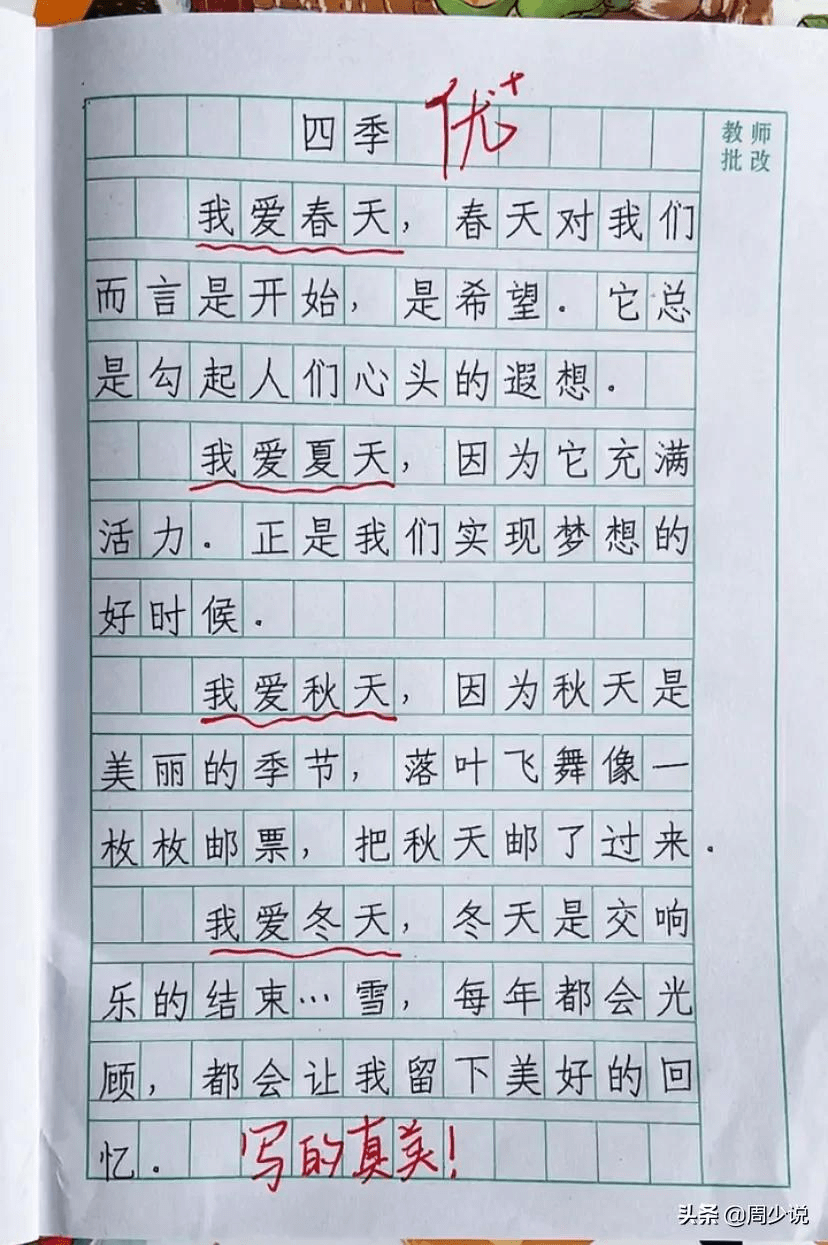 四季 优+
教师
批改
我爱春天，春天对我们
而言是开始，是希望．它总
是勾起人们心头的遐想．
我爱夏天，因为它充满
活力．正是我们实现梦想的
好时候．
我爱秋天，因为秋天是
美丽的季节，落叶飞舞像一
枚枚邮票，把秋天邮了过来．
我爱冬天，冬天是交响
乐的结束…雪，每年都会光
顾，都会让我留下美好的回
忆．
写的真美！
头条 @周少说